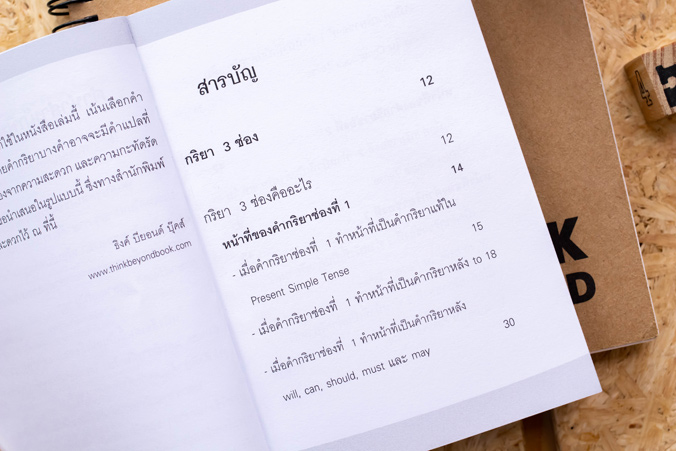 ใช้ในหนังสือเล่มนี้ เน้นเลือกคำ
คำกริยาบางคำอาจจะมีคำแปลที่
จากความสะดวก และความกะทัดรัด
นำเสนอในรูปแบบนี้ ซึ่งทางสำนักพิมพ์
ไว้ ณ ที่นี้
ธิงค์ บียอนด์ บุ๊คส์
www.thinkbeyondbook.com
สารบัญ
กริยา 3 ช่อง 12
กริยา 3 ช่องคืออะไร 12
หน้าที่ของคำกริยาช่องที่ 1 14
- เมื่อคำกริยาช่องที่ 1 ทำหน้าที่เป็นคำกริยาแท้ใน
Present Simple Tense 15
- เมื่อคำกริยาช่องที่ 1 ทำหน้าที่เป็นคำกริยาหลัง to 18
- เมื่อคำกริยาช่องที่ 1 ทำหน้าที่เป็นคำกริยาหลัง
will, can, should, must และ may 30
K
D